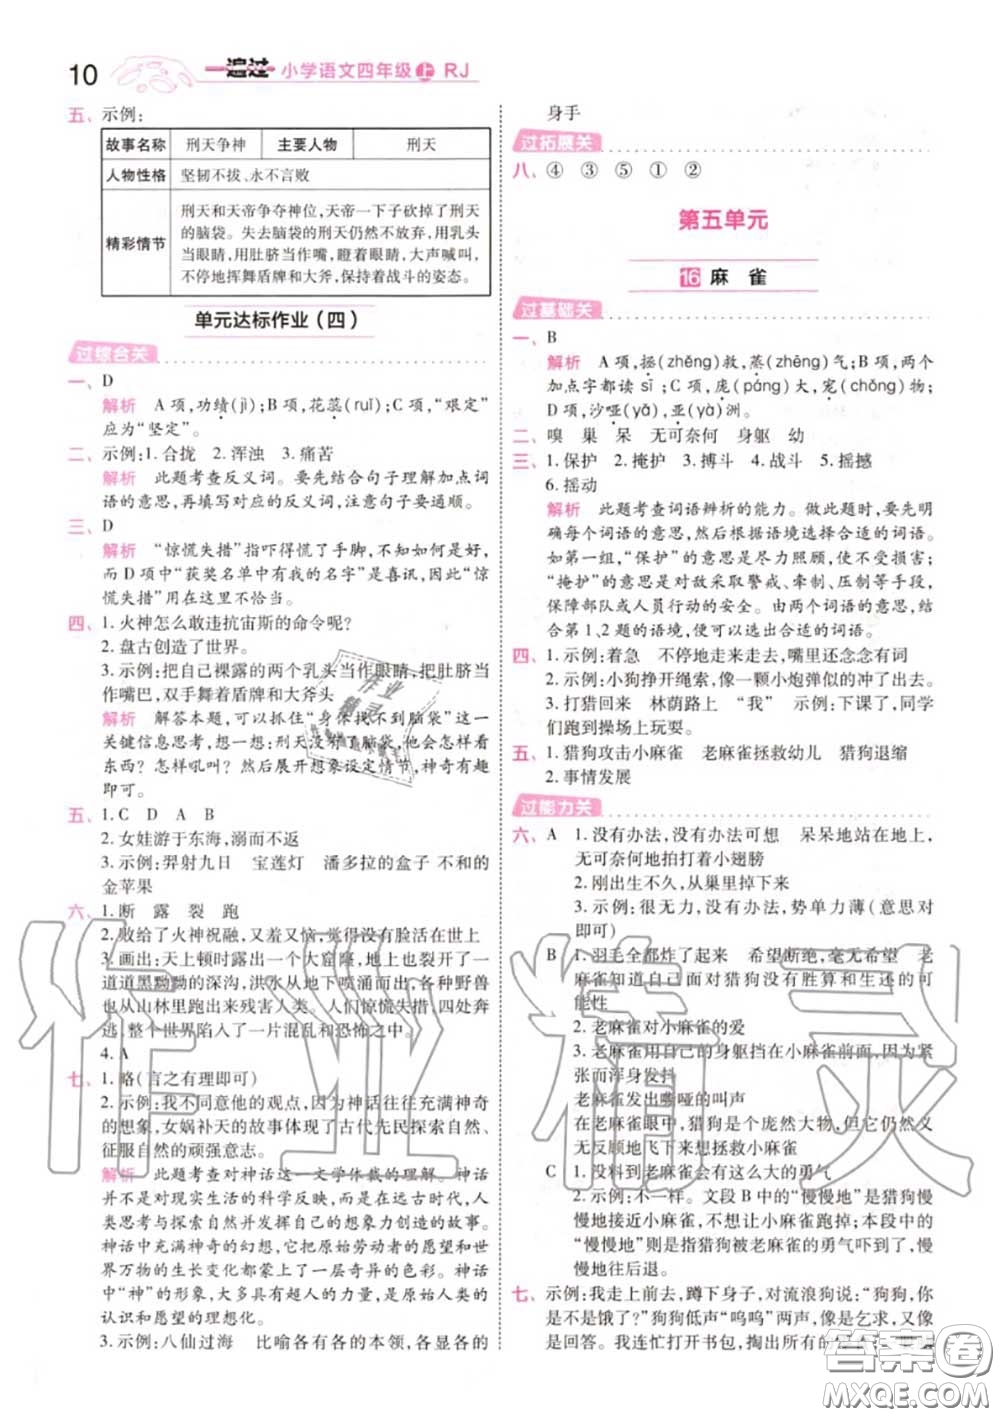 10 一遍过 小学语文四年级上 RJ
五、示例:
故事名称 刑天争神 主要人物 刑天
人物性格 坚韧不拔、永不言败
精彩情节
刑天和天帝争夺神位,天帝一下子砍掉了刑天
的脑袋。失去脑袋的刑天仍然不放弃,用乳头
当眼睛,用肚脐当作嘴,瞪着眼睛,大声喊叫,
不停地挥舞盾牌和大斧,保持着战斗的姿态。
单元达标作业(四)
过综合关
一、D
解析 A项,功绩(jì);B项,花蕊(ruǐ);C项,“艰定”
应为“坚定”。
二、示例:1.合拢 2.浑浊 3.痛苦
解析 此题考查反义词。要先结合句子理解加点词
语的意思,再填写对应的反义词,注意句子要通顺。
三、D
解析 “惊慌失措”指吓得慌了手脚,不知如何是好。
而D项中“获奖名单中有我的名字”是喜讯,因此“惊
慌失措”用在这里不恰当。
四、1.火神怎么敢违抗宙斯的命令呢?
2.盘古创造了世界。
3.示例:把自己裸露的两个乳头当作眼睛,把肚脐当
作嘴巴,双手舞着盾牌和大斧头
解析 解答本题,可以抓住“身体找不到脑袋”这一
关键信息思考,想一想:刑天没了脑袋,他会怎样观
察呢?怎样吼叫?然后展开想象设定情节,神奇有趣
即可。
五、1.C D A B
2.女娃游于东海,溺而不返
3.示例:羿射九日 宝莲灯 潘多拉的盒子 不和的
金苹果
六、1.断 露 裂 跑
2.败给了火神祝融,又羞又恼,觉得没有脸活在世上
3.画出:天上顿时露出一个大窟窿,地上也裂开了一
道道黑黝黝的深沟,洪水从大地喷涌而出,各种野兽
也从山林里跑出来残害人类。人们惊慌失措,四处奔
逃,整个世界陷入了一片混乱和恐怖之中。
4.A
七、1.略(言之有理即可)
2.示例:我不同意他的观点,因为神话往往充满神奇
的想象,女娲补天的故事体现了古代先民探索自然、
征服自然的顽强意志。
解析 此题考查对神话这一文学体裁的理解。神话
并不是对现实生活的科学反映,而是在远古时代,人
类思考与探索自然并发挥自己的想象力创造的故事。
神话中充满神奇的幻想,它把原始劳动者的愿望和世
界万物的生长变化都蒙上了一层奇异的色彩。神话
中“神”的形象,大多具有超人的力量,是原始人类的
认识和愿望的理想化。
3.示例:八仙过海 比喻各有各的本领,各显各的
身手
过拓展关
八、④ ③ ⑤ ① ②
第五单元
16 麻雀
过基础关
一、B
解析 A项,拯(zhěng)救,蒸(zhēng)气;B项,两个
加点字都读sī;C项,庞(páng)大,宠(chǒng)物;
D项,沙哑(yǎ),亚(yà)洲。
二、嗅 巢 呆 无可奈何 身躯 幼
三、1.保护 2.掩护 3.搏斗 4.战斗 5.摇撼
6.摇动
解析 此题考查词语辨析的能力。做此题时,要先明
确每个词语的意思,然后根据语境选择合适的词语。
如第一组,“保护”的意思是尽力照顾,使不受损害;
“掩护”的意思是对敌采取警戒、牵制、压制等手段,
保障部队或人员行动的安全。由两个词语的意思,结
合第1、2题的语境,便可以选出合适的词语。
四、1.示例:着急 不停地走来走去,嘴里还念念有词
2.示例:小狗挣开绳索,像一颗小炮弹似的冲了出去。
3.打猎回来 林荫路上 “我” 示例:下课了,同学
们跑到操场上玩耍。
五、1.猎狗攻击小麻雀 老麻雀拯救幼儿 猎狗退缩
2.事情发展
过能力关
六、A 1.没有办法,没有办法可想 呆呆地站在地上,
无可奈何地拍打着小翅膀
2.刚出生不久,从巢里掉下来
3.示例:很无力,没有办法,势单力薄(意思对
即可)
B 1.羽毛全都炸了起来 希望断绝,毫无希望 老
麻雀知道自己面对猎狗没有胜算和生还的可
能性
2.老麻雀对小麻雀的爱
3.老麻雀用自己的身躯挡在小麻雀前面,因为紧
张而浑身发抖
老麻雀发出嘶哑的叫声
在老麻雀的眼里,猎狗是庞然大物,但它还是义
无反顾地飞下来拯救小麻雀
C 1.没料到老麻雀会有这么大的勇气
2.示例:不一样。文段B中的“慢慢地”是猎狗慢
慢地接近小麻雀,不让小麻雀跑掉;本段中的
“慢慢地”则是指猎狗被老麻雀的勇气吓到了,慢
慢地往后退。
七、示例:我走上前去,蹲下身子,对流浪狗说:“狗狗,你
是不是饿了?”狗狗低声“呜呜”两声,像是乞求,又像
是回答。我连忙打开书包,掏出所有的
作业精灵
答案圈
MXQE.COM